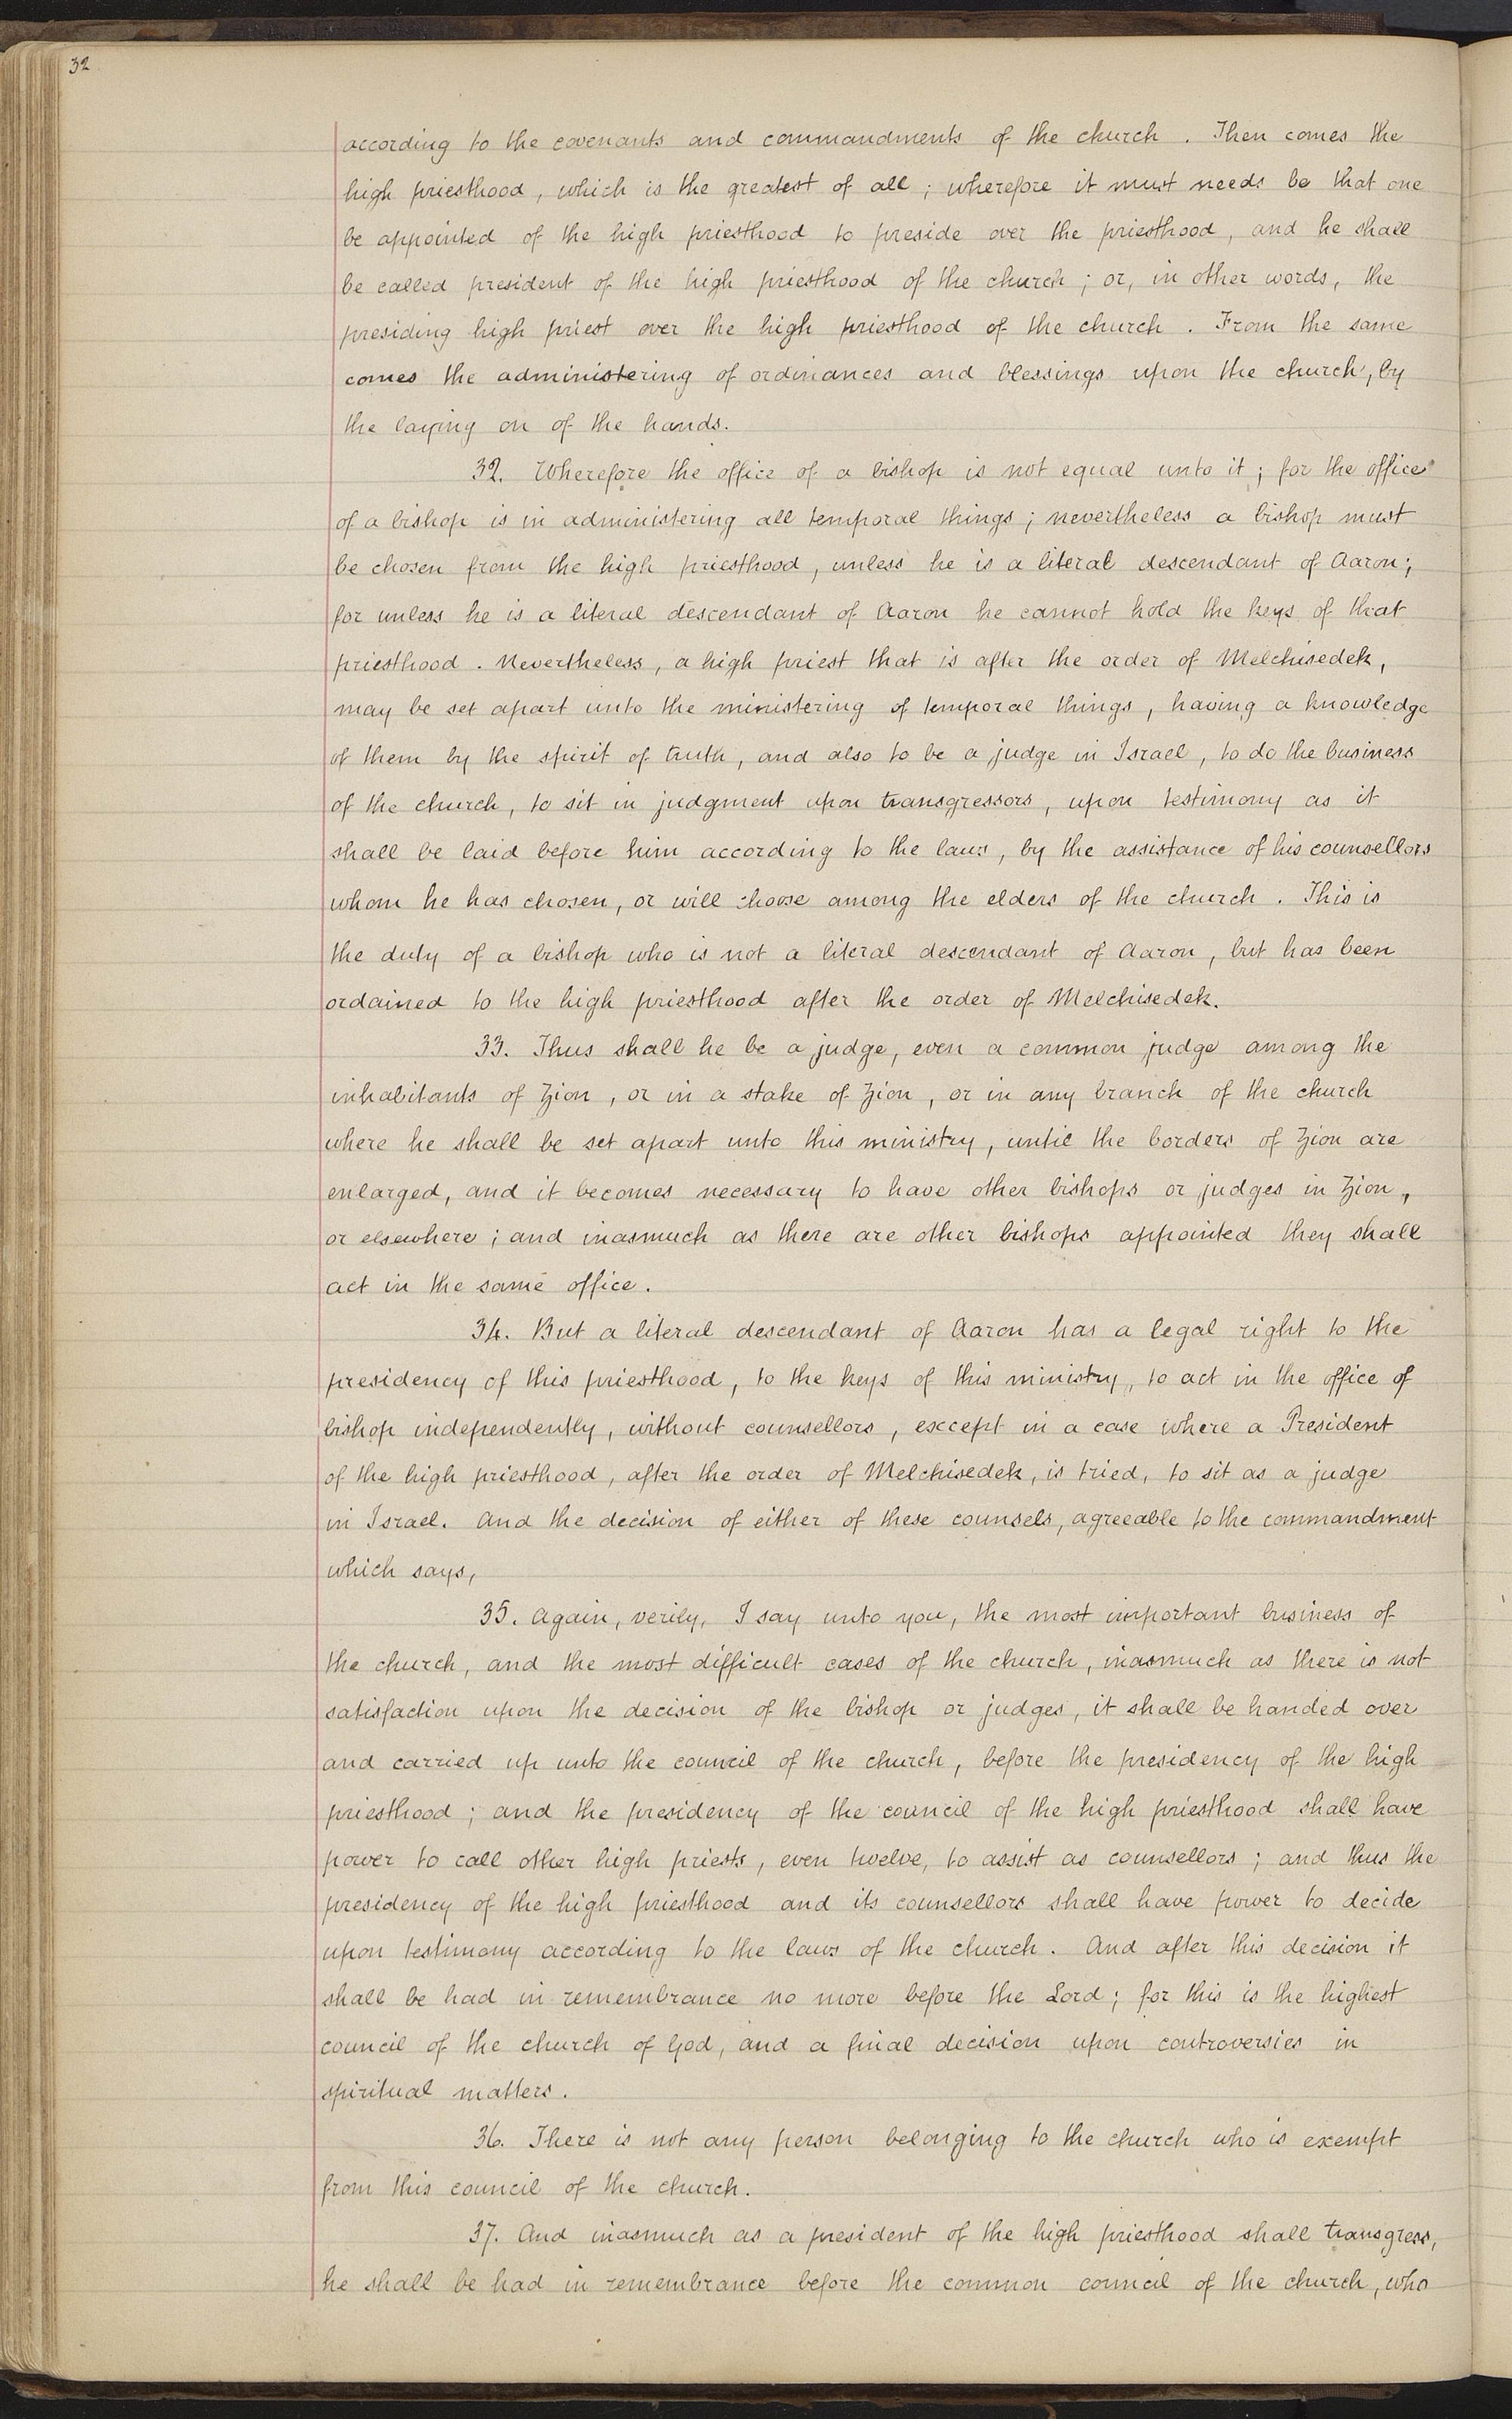 32
according to the covenants and commandments of the church. Then comes the
high priesthood, which is the greatest of all; wherefore it must needs be that one
be appointed of the high priesthood to preside over the priesthood, and he shall
be called president of the high priesthood of the church; or, in other words, the
presiding high priest over the high priesthood of the church. From the same
comes the administering of ordinances and blessings upon the church, by
the laying on of the hands.
32. Wherefore the office of a bishop is not equal unto it; for the office
of a bishop is in administering all temporal things; nevertheless a bishop must
be chosen from the high priesthood, unless he is a literal descendant of Aaron;
for unless he is a literal descendant of Aaron he cannot hold the keys of that
priesthood. Nevertheless, a high priest that is after the order of Melchisedek,
may be set apart unto the ministering of temporal things, having a knowledge
of them by the spirit of truth, and also to be a judge in Israel, to do the business
of the church, to sit in judgment upon transgressors, upon testimony as it
shall be laid before him according to the laws, by the assistance of his counsellors
whom he has chosen, or will choose among the elders of the church. This is
the duty of a bishop who is not a literal descendant of Aaron, but has been
ordained to the high priesthood after the order of Melchisedek.
33. Thus shall he be a judge, even a common judge among the
inhabitants of Zion, or in a stake of Zion, or in any branch of the church
where he shall be set apart unto this ministry, until the borders of Zion are
enlarged, and it becomes necessary to have other bishops or judges in Zion,
or elsewhere; and inasmuch as there are other bishops appointed they shall
act in the same office.
34. But a literal descendant of Aaron has a legal right to the
presidency of this priesthood, to the keys of this ministry, to act in the office of
bishop independently, without counsellors, except in a case where a President
of the high priesthood, after the order of Melchisedek, is tried, to sit as a judge
in Israel. And the decision of either of these counsels, agreeable to the commandment
which says,
35. Again, verily, I say unto you, the most important business of
the church, and the most difficult cases of the church, inasmuch as there is not
satisfaction upon the decision of the bishop or judges, it shall be handed over
and carried up unto the council of the church, before the presidency of the high
priesthood; and the presidency of the council of the high priesthood shall have
power to call other high priests, even twelve, to assist as counsellors; and thus the
presidency of the high priesthood and its counsellors shall have power to decide
upon testimony according to the laws of the church. And after this decision it
shall be had in remembrance no more before the Lord; for this is the highest
council of the church of God, and a final decision upon controversies in
spiritual matters.
36. There is not any person belonging to the church who is exempt
from this council of the church.
37. And inasmuch as a president of the high priesthood shall transgress,
he shall be had in remembrance before the common council of the church, who